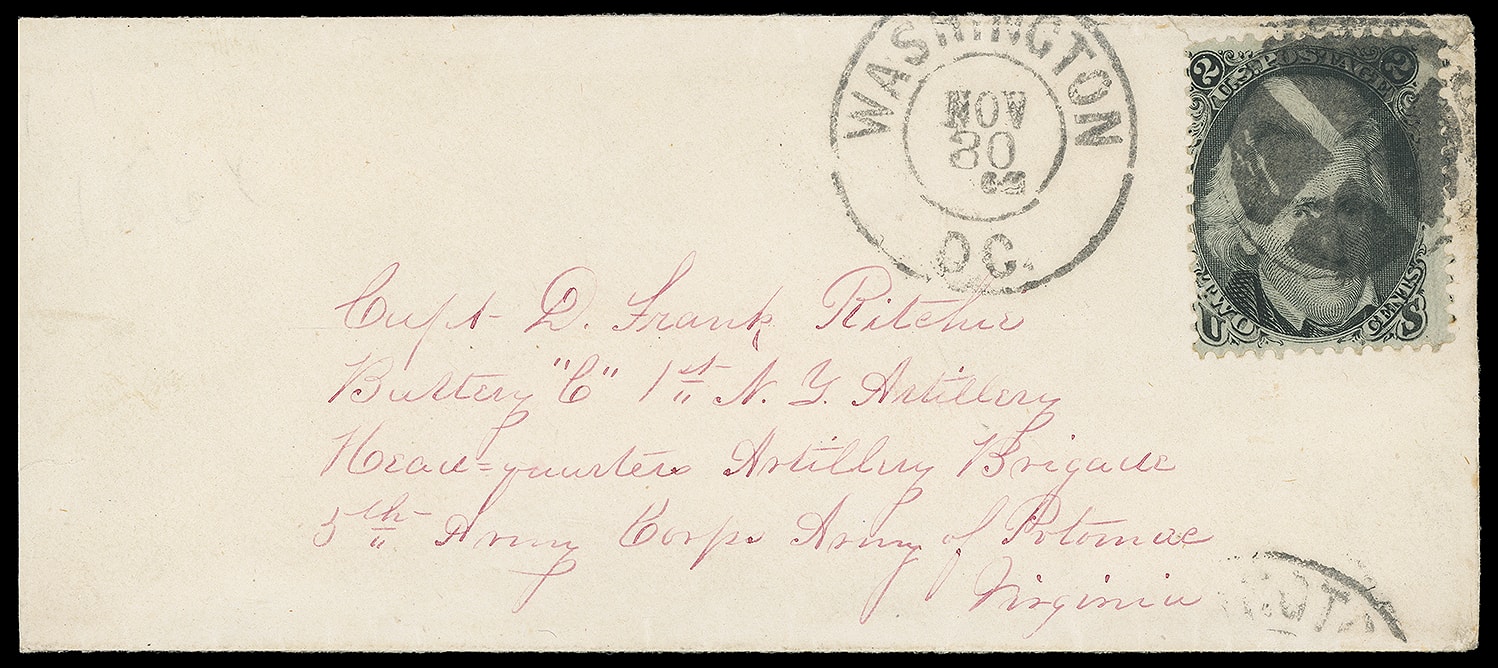 WASHINGTON
NOV
30
D.C.
2 U.S. POSTAGE 2
TWO CENTS
U S
Capt D. Frank Ritchie
Battery "C" 1st N. Y. Artillery
Head=quarters Artillery Brigade
5th Army Corps Army of Potomac
Virginia